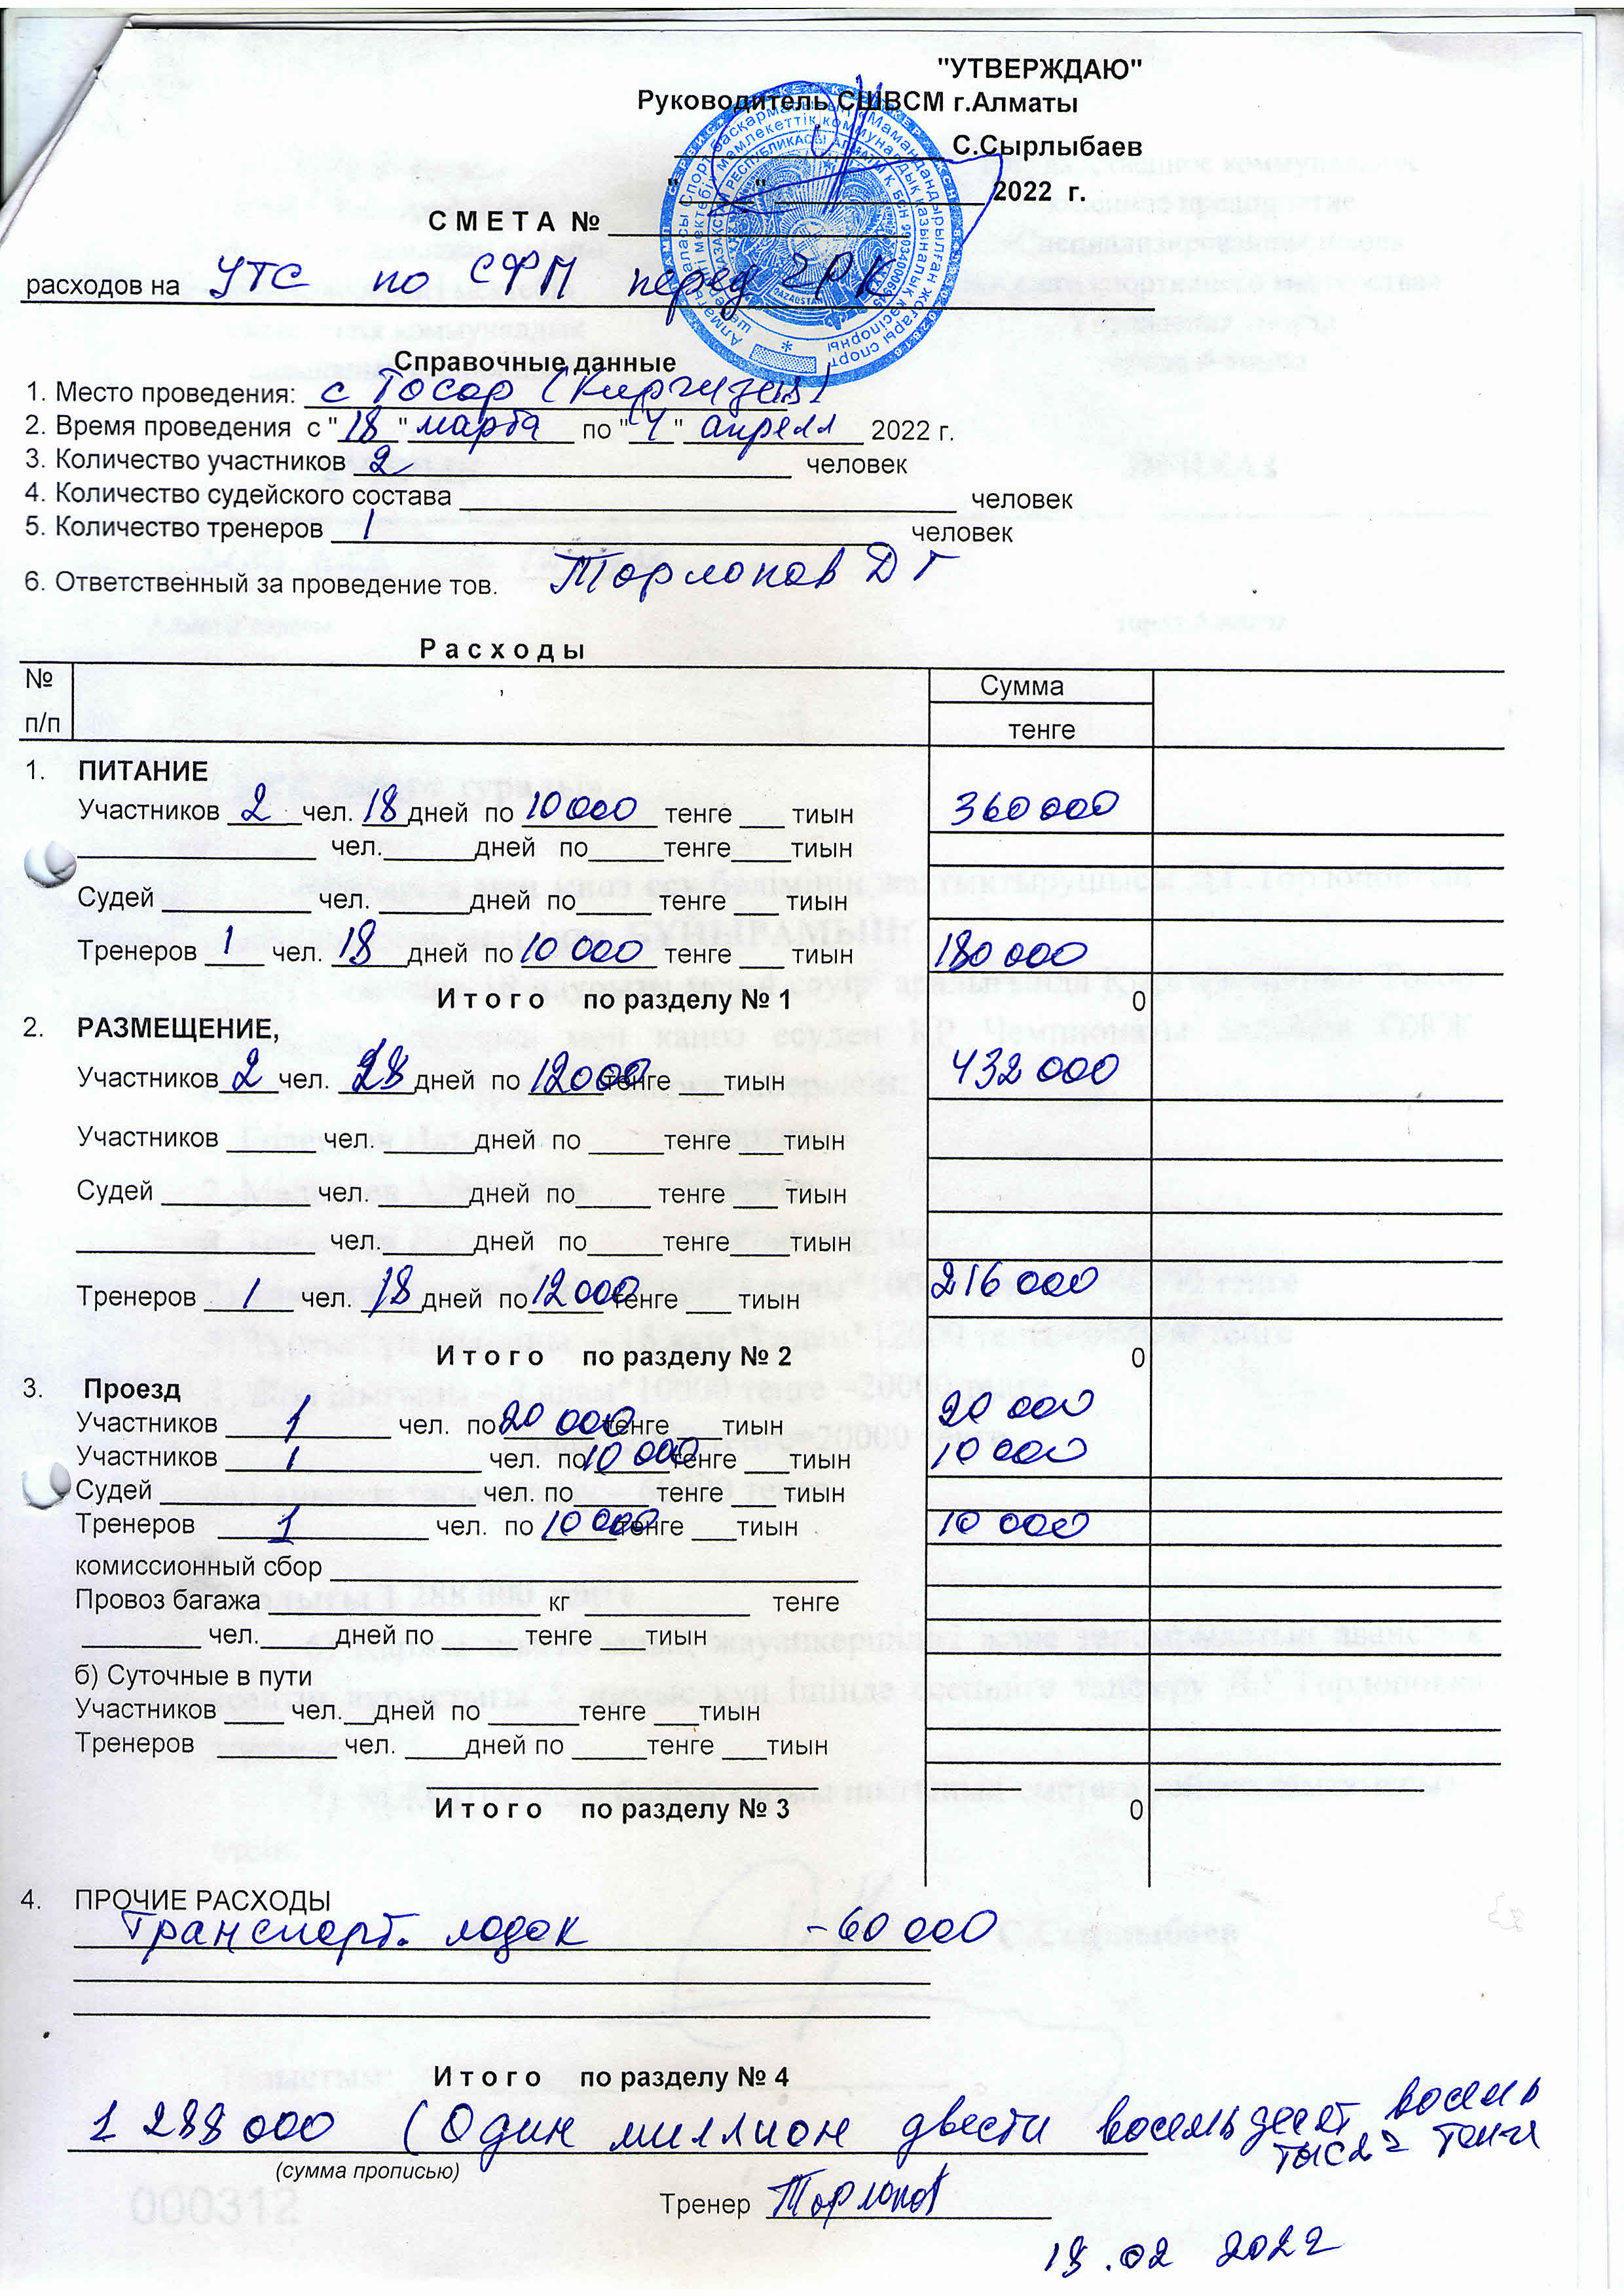 "УТВЕРЖДАЮ"
Руководитель СШВСМ г.Алматы
С.Сырлыбаев
"____" ______________ 2022 г.
С М Е Т А № ______________
расходов на УТС по СФП перед ЧРК
Справочные данные
1. Место проведения: с Тосор (Киргизия)
2. Время проведения с "18" марта по "4" апреля 2022 г.
3. Количество участников 2 человек
4. Количество судейского состава ______________ человек
5. Количество тренеров 1 человек
6. Ответственный за проведение тов. Торлопов Д Г
Р а с х о д ы
№ п/п Сумма
тенге
1. ПИТАНИЕ
Участников 2 чел. 18 дней по 10 000 тенге ___ тиын 360 000
______________ чел.______дней по_____тенге____тиын
Судей __________ чел. ______дней по_____ тенге ___ тиын
Тренеров 1 чел. 18 дней по 10 000 тенге ___ тиын 180 000
И т о г о по разделу № 1 0
2. РАЗМЕЩЕНИЕ,
Участников 2 чел. 18 дней по 12000 тенге ___тиын 432 000
Участников ______ чел. ______дней по _____тенге ___тиын
Судей __________ чел. ______дней по_____ тенге ___ тиын
______________ чел.______дней по_____тенге____тиын
Тренеров 1 чел. 18 дней по 12 000 тенге ___ тиын 216 000
И т о г о по разделу № 2 0
3. Проезд
Участников 1 чел. по 20 000 тенге ___тиын 20 000
Участников 1 чел. по 10 000 тенге ___тиын 10 000
Судей ______________ чел. по_____ тенге ___ тиын
Тренеров 1 чел. по 10 000 тенге ___тиын 10 000
комиссионный сбор ______________
Провоз багажа ______________ кг __________ тенге
________ чел._____дней по ______тенге ____тиын
б) Суточные в пути
Участников ____ чел.__дней по ______тенге ___тиын
Тренеров ________ чел. ____дней по _____тенге ___тиын
И т о г о по разделу № 3 0
4. ПРОЧИЕ РАСХОДЫ
Транспорт. лодок - 60 000
И т о г о по разделу № 4
1 288 000 (Один миллион двести восемьдесят восемь
тысяч тенге
(сумма прописью)
000312
Тренер Торлопов
18.02 2022